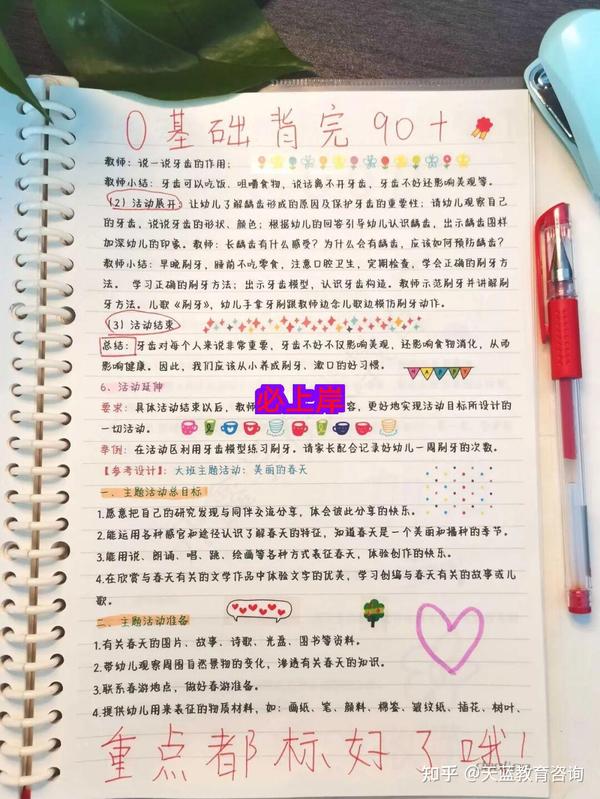 0基础背完90+
教师：说一说牙齿的作用；
教师小结：牙齿可以吃饭、咀嚼食物，说话离不开牙齿，牙齿不好还影响美观等。
（2）活动展开：让幼儿了解龋齿形成的原因及保护牙齿的重要性；请幼儿观察自己
的牙齿，说说牙齿的形状、颜色；根据幼儿的回答引导幼儿认识龋齿，出示龋齿图样
加深幼儿的印象。教师：长龋齿有什么感受？为什么会有龋齿，应该如何预防龋齿？
教师小结：早晚刷牙，睡前不吃零食，注意口腔卫生，定期检查，学会正确的刷牙方
法。学习正确的刷牙方法；出示牙齿模型，认识牙齿构造。教师示范刷牙并讲解刷
牙方法。儿歌《刷牙》，幼儿手拿牙刷跟教师边念儿歌边模仿刷牙动作。
（3）活动结束
总结：牙齿对每个人来说非常重要，牙齿不好不仅影响美观，还影响食物消化，从而
影响健康。因此，我们应该从小养成刷牙、漱口的好习惯。
HAPPY
6、活动延伸
必上岸
要求：具体活动结束以后，教师 容，更好地实现活动目标所设计的
一切活动。
举例：在活动区利用牙齿模型练习刷牙。请家长配合记录好幼儿一周刷牙的次数。
【参考设计】：大班主题活动：美丽的春天
一、主题活动总目标
1.愿意把自己的研究发现与同伴交流分享，体会彼此分享的快乐。
2.能运用各种感官和途径认识了解春天的特征，知道春天是一个美丽和播种的季节。
3.能用说、朗诵、唱、跳、绘画等各种方式表征春天，体验创作的快乐。
4.在欣赏与春天有关的文学作品中体验文字的优美，学习创编与春天有关的故事或儿
歌。
二、主题活动准备
1.有关春天的图片、故事、诗歌、光盘、图书等资料。
2.带幼儿观察周围自然景物的变化，渗透有关春天的知识。
3.联系春游地点，做好春游准备。
4.提供幼儿用来表征的物质材料，如：画纸、笔、颜料、棉签、皱纹纸、插花、树叶、
重点都标好了哦！
知乎 @天蓝教育咨询